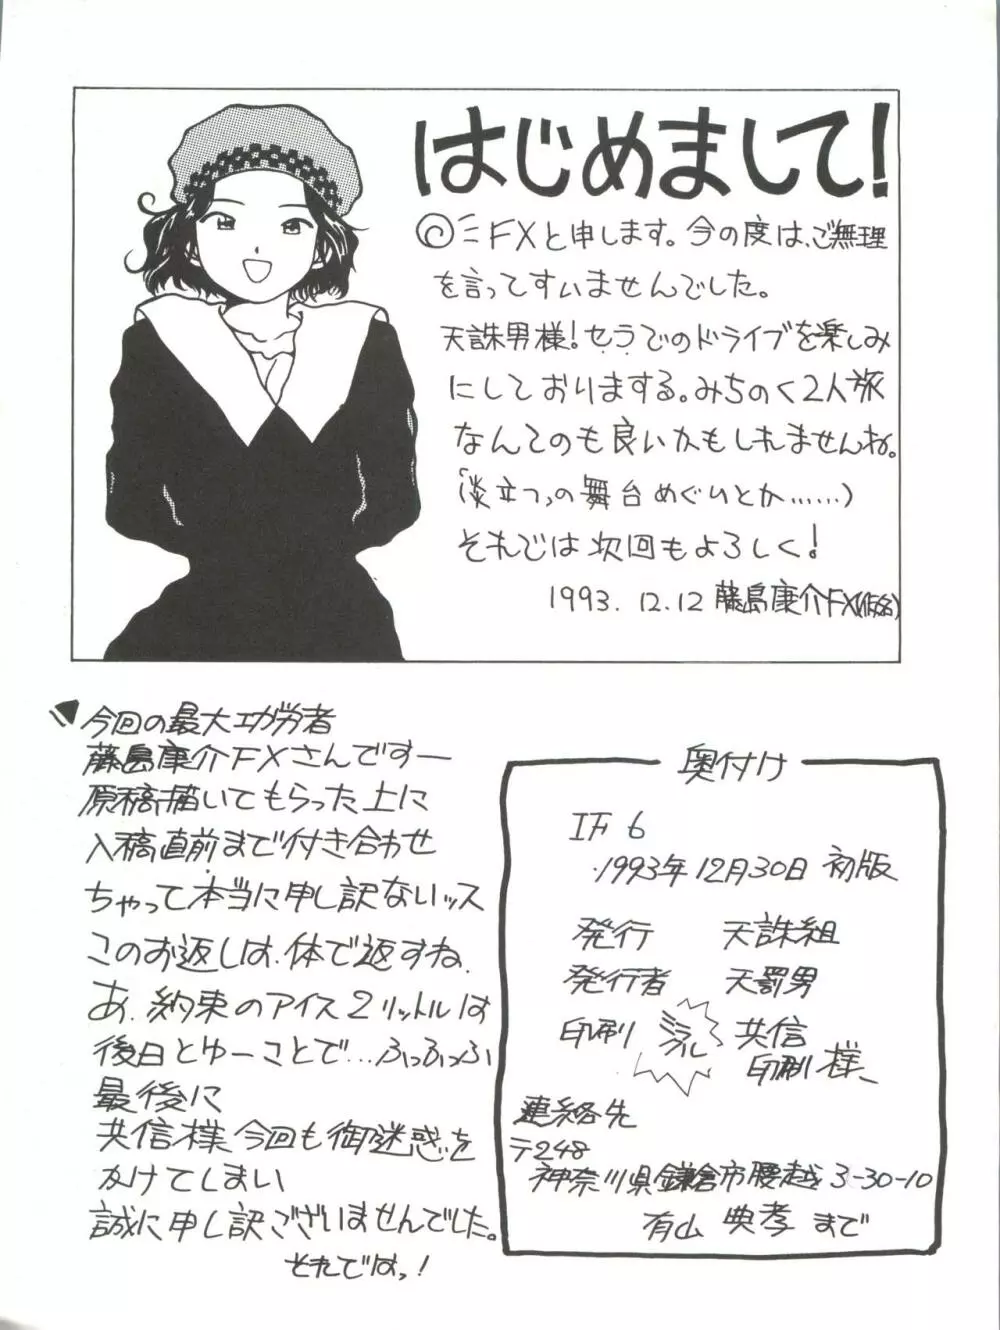 はじめまして!
FXと申します。今の度は、ご無理
を言ってすいませんでした。
天誅男様!セラでのドライブを楽しみ
にしておりまする。みちのく2人旅
なんてのも良いかもしれませんね。
の舞台めぐりとか……)
それでは次回もよろしく!
1993.12.12 藤島康介FX(仮名)
今回の最大功労者
藤島康介FXさんですー
原稿描いてもらった上に
入稿直前まで付き合わせ
ちゃって本当に申し訳ないッス
このお返しは、体で返すね、
あ、約束のアイス2リットルは
後日とゆーことで…ふっふっふ
最後に
共信様、今回も御迷惑を
かけてしまい
誠に申し訳ございませんでした。
それではっ!
奥付け
IF 6
1993年12月30日 初版
発行 天誅組
発行者 天罰男
印刷 ミラクル 共信
印刷 様、
連絡先
〒248
神奈川県鎌倉市腰越3-30-10
有山 典孝 まで